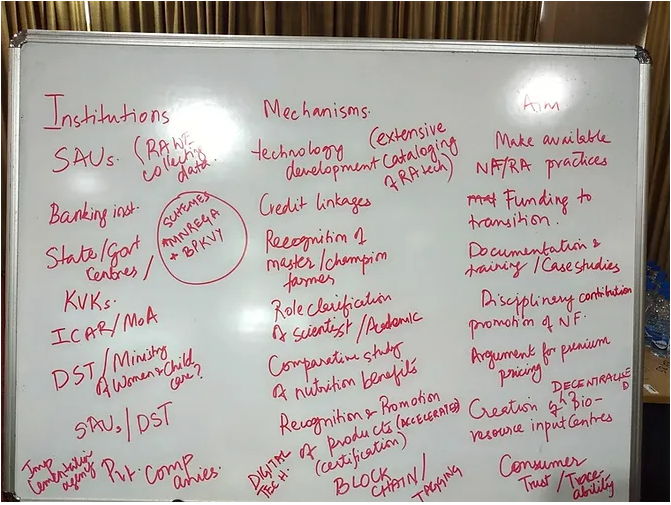 Institutions
Mechanisms.
Aim
SAUs. (RAWE
collecting
data)
technology (extensive
development cataloging
of RA tech)
Make available
NF/RA practices
Banking inst.
Credit linkages
Funding to
transition.
SCHEMES
MNREGA
+ BPKVY
State/Govt
Centres /
Recognition of
master/champion
farmer
Documentation &
training / Case studies
KVKs.
ICAR/MoA
Role clarification
of scientist / Academic
Disciplinary contribution
promotion of NF.
DST / Ministry
of Women & Child
care?
Comparative study
of nutrition benefits
Argument for premium
pricing
SAUs/DST
Recognition & Promotion
of products (ACCELERATED)
(certification)
DECENTRALISED
Creation of Bio-
resource input Centres
Implementation
agency
Pvt. Comp
anies.
DIGITAL
TECH.
BLOCK
CHAIN /
TAGGING
Consumer
Trust / Trace-
ability